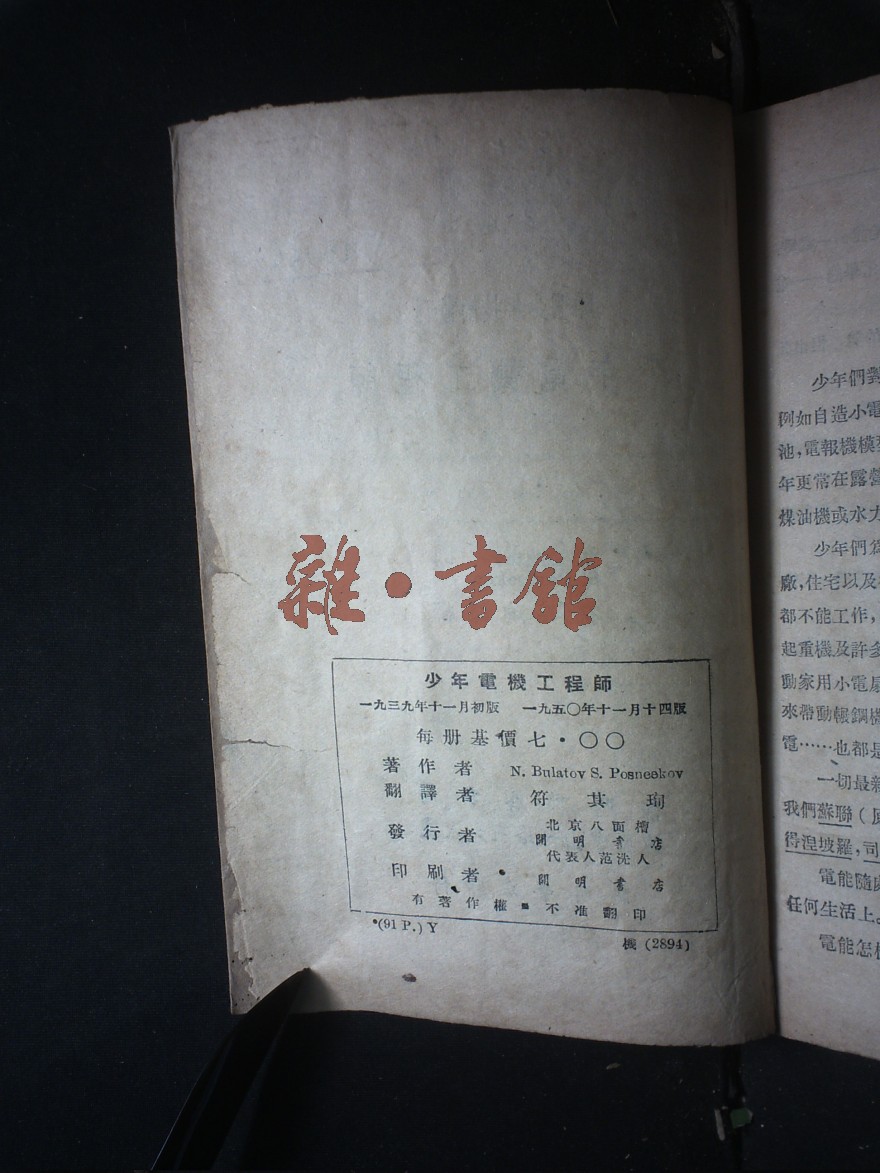 雜·書館
少年電機工程師
一九三九年十一月初版 一九五〇年十一月十四版
每册基價七·〇〇
著作者 N. Bulatov S. Posneekov
翻譯者 符其珣
發行者 北京八面槽
開明書店
代表人范洗人
印刷者 開明書店
有著作權 不准翻印
(91 P.) Y
機 (2894)
少年們對
例如自造小電
池,電報機模型
年更常在露營
煤油機或水力
少年們
廠,住宅以及
都不能工作,
起重機及許多
動家用小電扇
來帶動帳鋼機
電……也都是
一切最新
我們蘇聯(
得涅坡羅,司
電能隨處
任何生活上。
電能怎樣